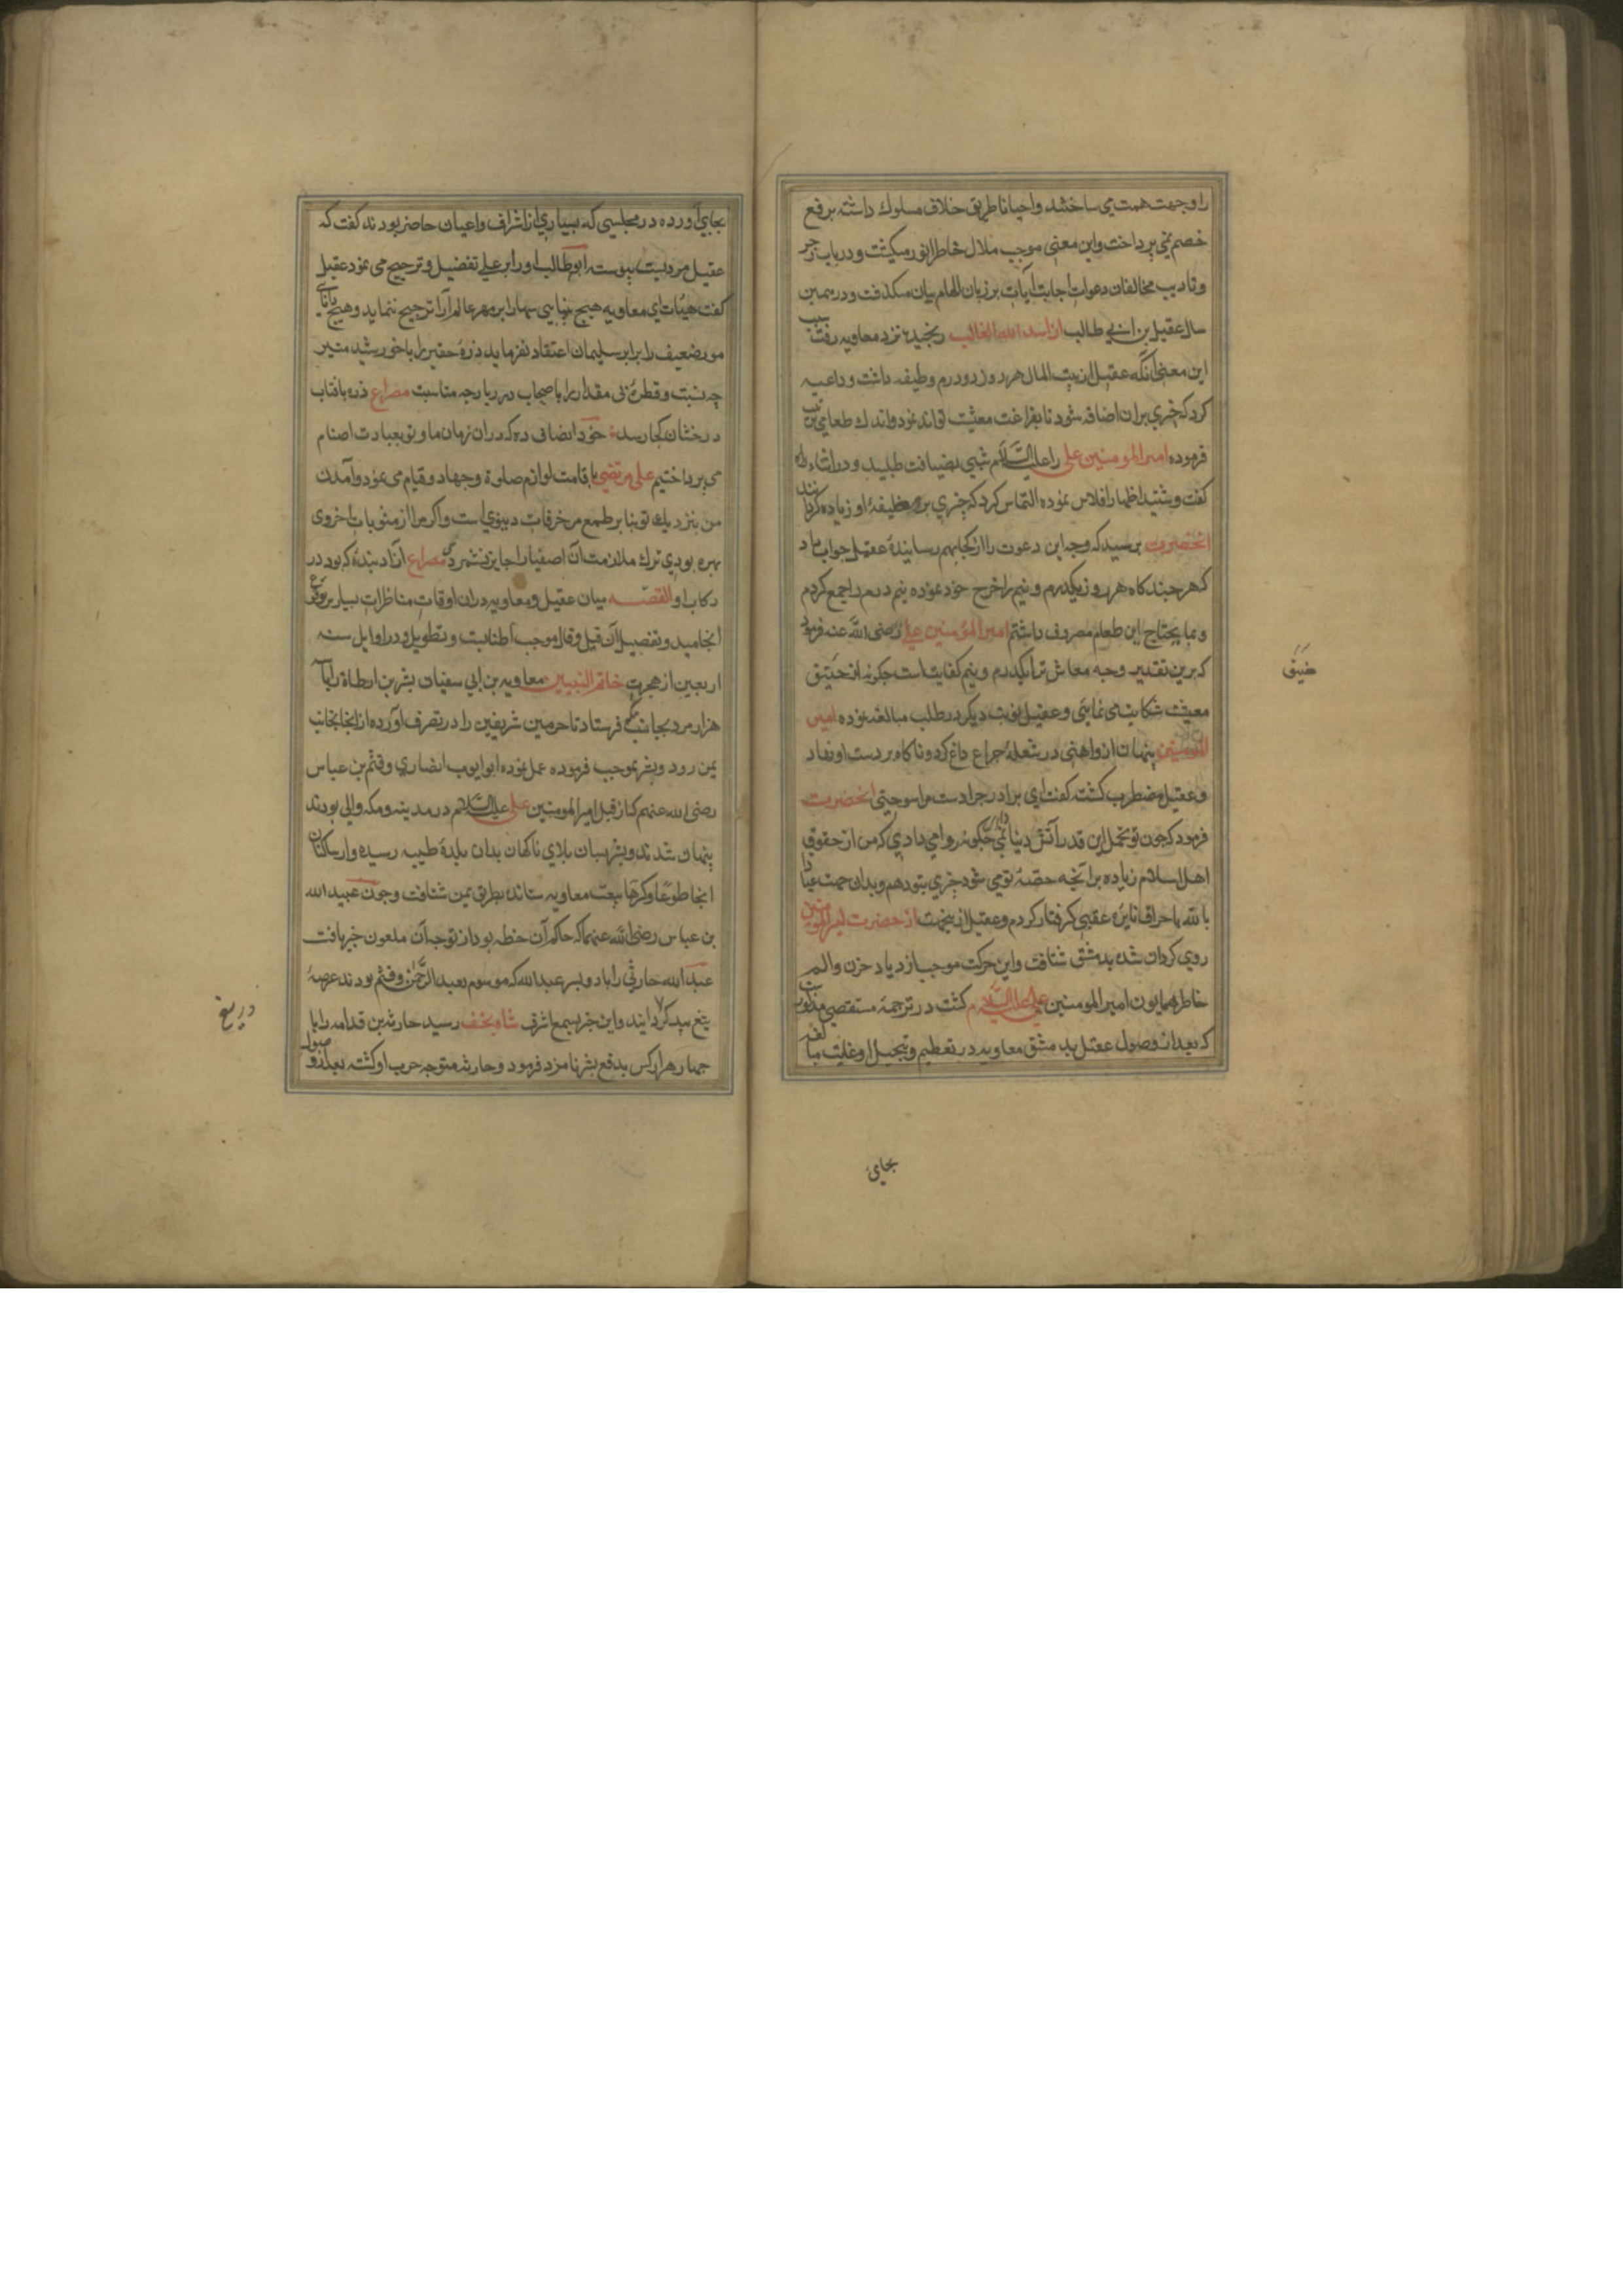 را وجهت همت می ساختند و احیانا طریق خلاف مسلوک داشته برفع
خصم نمی پرداخت و این معنی موجب ملال خاطر انور میکشت و در باب زجر
و تادیب مخالفان دعوات اجابت آیات بر زبان الهام بیان میکذشت و در همین
سال عقیل بن ابی طالب از اسد الله الغالب رنجیده نزد معاویه رفت سبب
این معنی آنکه عقیل از بیت المال هر روز دو درم وظیفه داشت و داعیه
کرد که چیزی بران اضافه شود تا بفراغت معیشت تواند نمود و اندک طعامی ترتیب
فرموده امیر المومنین علی را علیه السلام شبی بضیافت طلبید و در اثناء
کفت و شنید اظهار افلاس نموده التماس کرد که چیزی بر وظیفهٔ او زیاده کردانند
انحضرت پرسید که وجه این دعوت را از کجا بهم رسانیدهٔ عقیل جواب داد
که هر چند کاه هر روز یکدرم و نیم را خرج خود نموده نیم درم را جمع کردم
و بما یحتاج این طعام مصروف داشتم امیر المؤمنین علی رضی الله عنه فرمود
که برین تقدیر وجه معاش ترا یکدرم و نیم کفایت است چکونه از ضیق
ضیق
معیشت شکایت می نمایی و عقیل نوبت دیکر در طلب مبالغه نموده امیر
المومنین پنهان ازو اهنی در شعلهٔ چراغ داغ کرد و ناکاه بر دست او نهاد
و عقیل مضطرب کشته کفت ای برادر چرا دست مرا سوختی انحضرت
فرمود که چون تو تحمل این قدر آتش دنیا نمی داری چکونه روا می داری که من از حقوق
اهل اسلام زیاده برانچه حصهٔ تو می شود چیزی بتو دهم و بدان جهت عیاذا
بالله باحراق نایره عقبی کرفتار کردم و عقیل ازینجهت از حضرت امیر المومنین
روی کردان شده بدمشق شتافت و این حرکت موجب ازدیاد حزن و الم
خاطر همایون امیر المومنین علی علیه السلام کشت در ترجمهٔ مستقصی مذکور است
که بعد از وصول عقیل بدمشق معاویه در تعظیم و تبجیل او غایت مبالغه
بجای
بجای آورده در مجلسی که بسیاری از اشراف و اعیان حاضر بودند کفت که
عقیل مردیست پیوسته ابو طالب او را بر علی تفضیل و ترجیح می نمود عقیل
کفت هیهات ای معاویه هیچ بینایی سها را بر مهر عالم آرا ترجیح ننماید و هیچ دانایی
مور ضعیف را برابر سلیمان اعتقاد نفرماید ذرهٔ حقیر را با خورشید منیر
چه نسبت و قطرهٔ بی مقدار را با در دریا چه مناسبت مصراع ذره بافتاب
درخشان کجا رسد خود انصاف ده که دران زمان ما و تو بعبادت اصنام
می پرداختیم علی مرتضی باقامت لوازم صلوة و جهاد و قیام می نمود و آمدن
من بنزدیک تو بنا بر طمع مزخرفات دنیوی است و اکر مرا از مثوبات اخروی
بهره بودی ترک ملازمت آن اصفیا را جایز نشمردی مصراع ازاد بندهٔ که بود در
رکاب او القصه میان عقیل و معاویه دران اوقات مناظرات بسیار بوقوع
انجامید و تفصیل آن قیل و قال موجب اطنابست و تطویل و در اوایل سنه
اربعین از هجرت خاتم النبیین معاویه بن ابی سفیان بشر بن ارطاة را با
هزار مرد بجانب مکه فرستاد تا حرمین شریفین را در تصرف آورده از انجا بجانب
یمن رود و بشر بموجب فرموده عمل نموده ابو ایوب انصاری و قثم بن عباس
رضی الله عنهم که از قبل امیر المومنین علی علیه السلام در مدینه و مکه والی بودند
پنهان شدند و بشر بسان بلای ناکهان بدان بلدهٔ طیبه رسیده و از ساکنان
انجا طوعا و کرها بیعت معاویه ستانده بطریق یمن شتافت و چون عبید الله
بن عباس رضی الله عنهما که حاکم آن خطه بود از توجه آن ملعون خبر یافت
عبد الله حارثی را با دو پسر عبد الله که موسوم بعبد الرحمن و قثم بودند عرصهٔ
تیغ بیدریغ کردانید و این خبر بسمع اشرف شاه نجف رسید حارثه بن قدامه را با
دریغ
چهار هزار کس بدفع بشر نامزد فرمود و حارثه متوجه حرب او کشته بعد از وصول